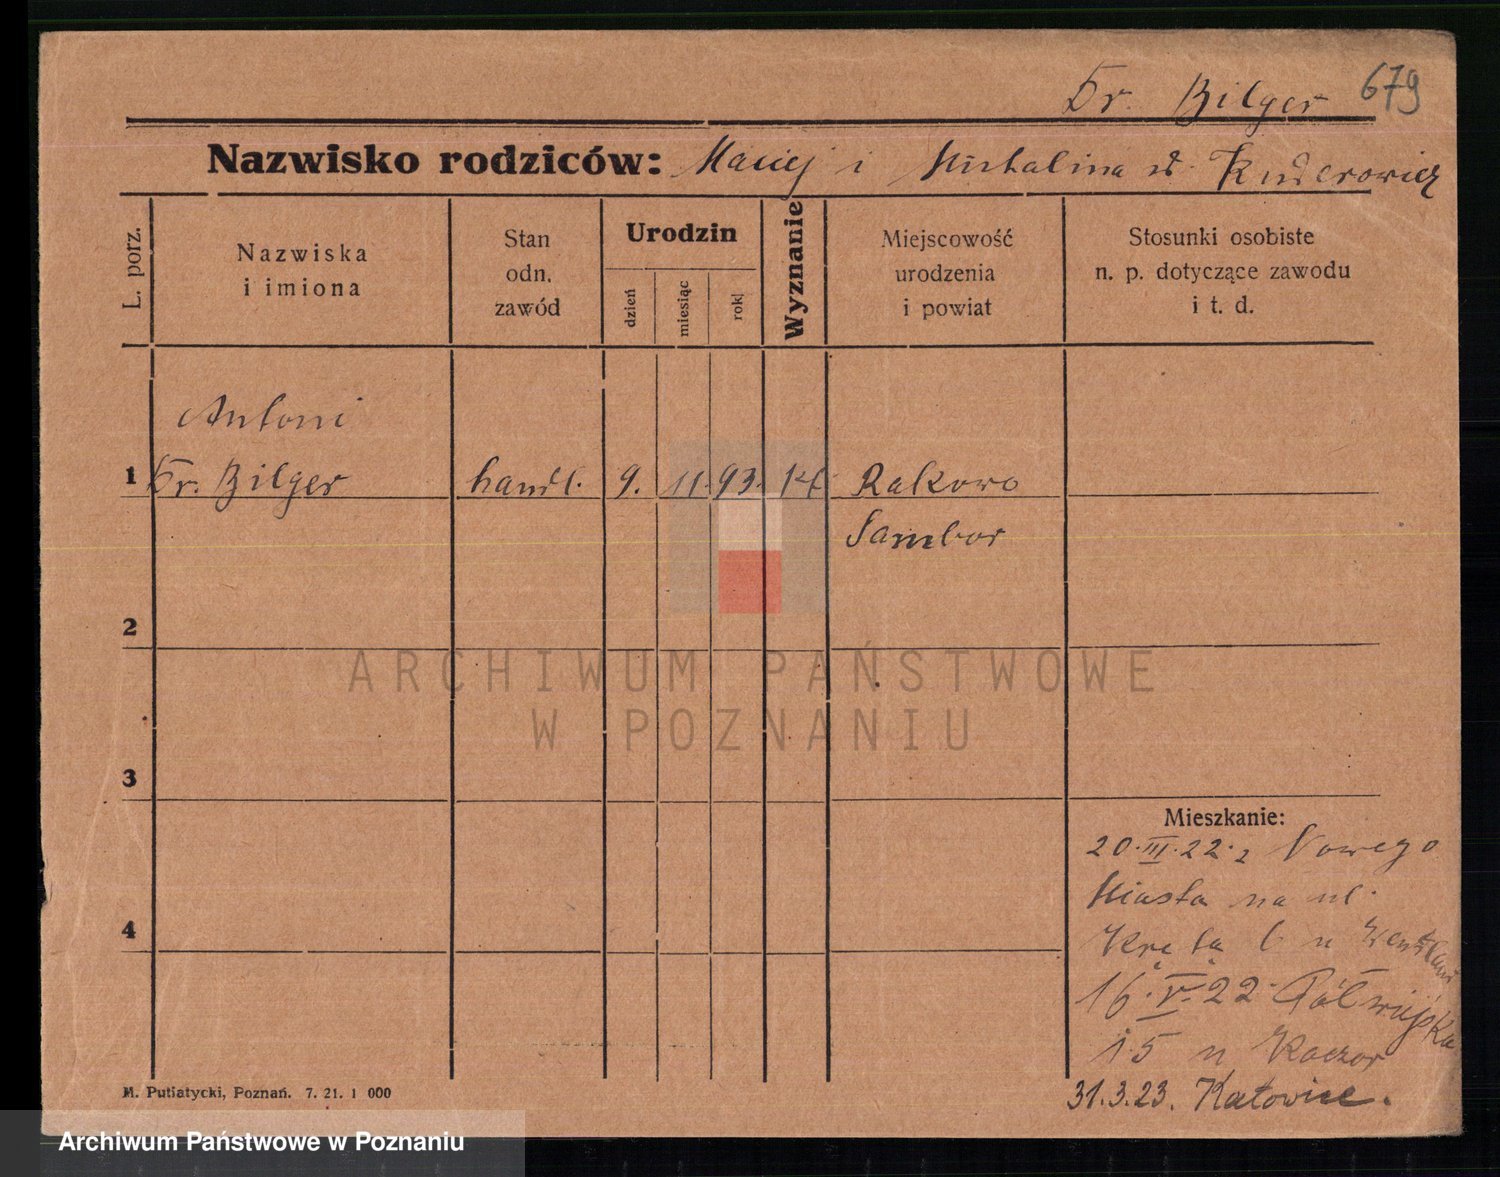 Dr. Bilger 679
Nazwisko rodziców: Maciej i Michalina d Kuderowicz
L. porz.
Nazwiska
i imiona
Stan
odn.
zawód
Urodzin
dzień
miesiąc
rok
Wyznanie
Miejscowość
urodzenia
i powiat
Stosunki osobiste
n. p. dotyczące zawodu
i t. d.
Antoni
1 Dr. Bilger handl. 9. 11. 93. kt Rakowo
Sambor
2
3
4
Mieszkanie:
20.III.22. z Nowego
Miasta na ul.
Kręta 6 u
16.V.22. Półwiejska
15 u Kaczor
31.3.23. Katowice.
M. Putiatycki, Poznań. 7. 21. 1 000
ARCHIWUM PAŃSTWOWE
W POZNANIU
Archiwum Państwowe w Poznaniu